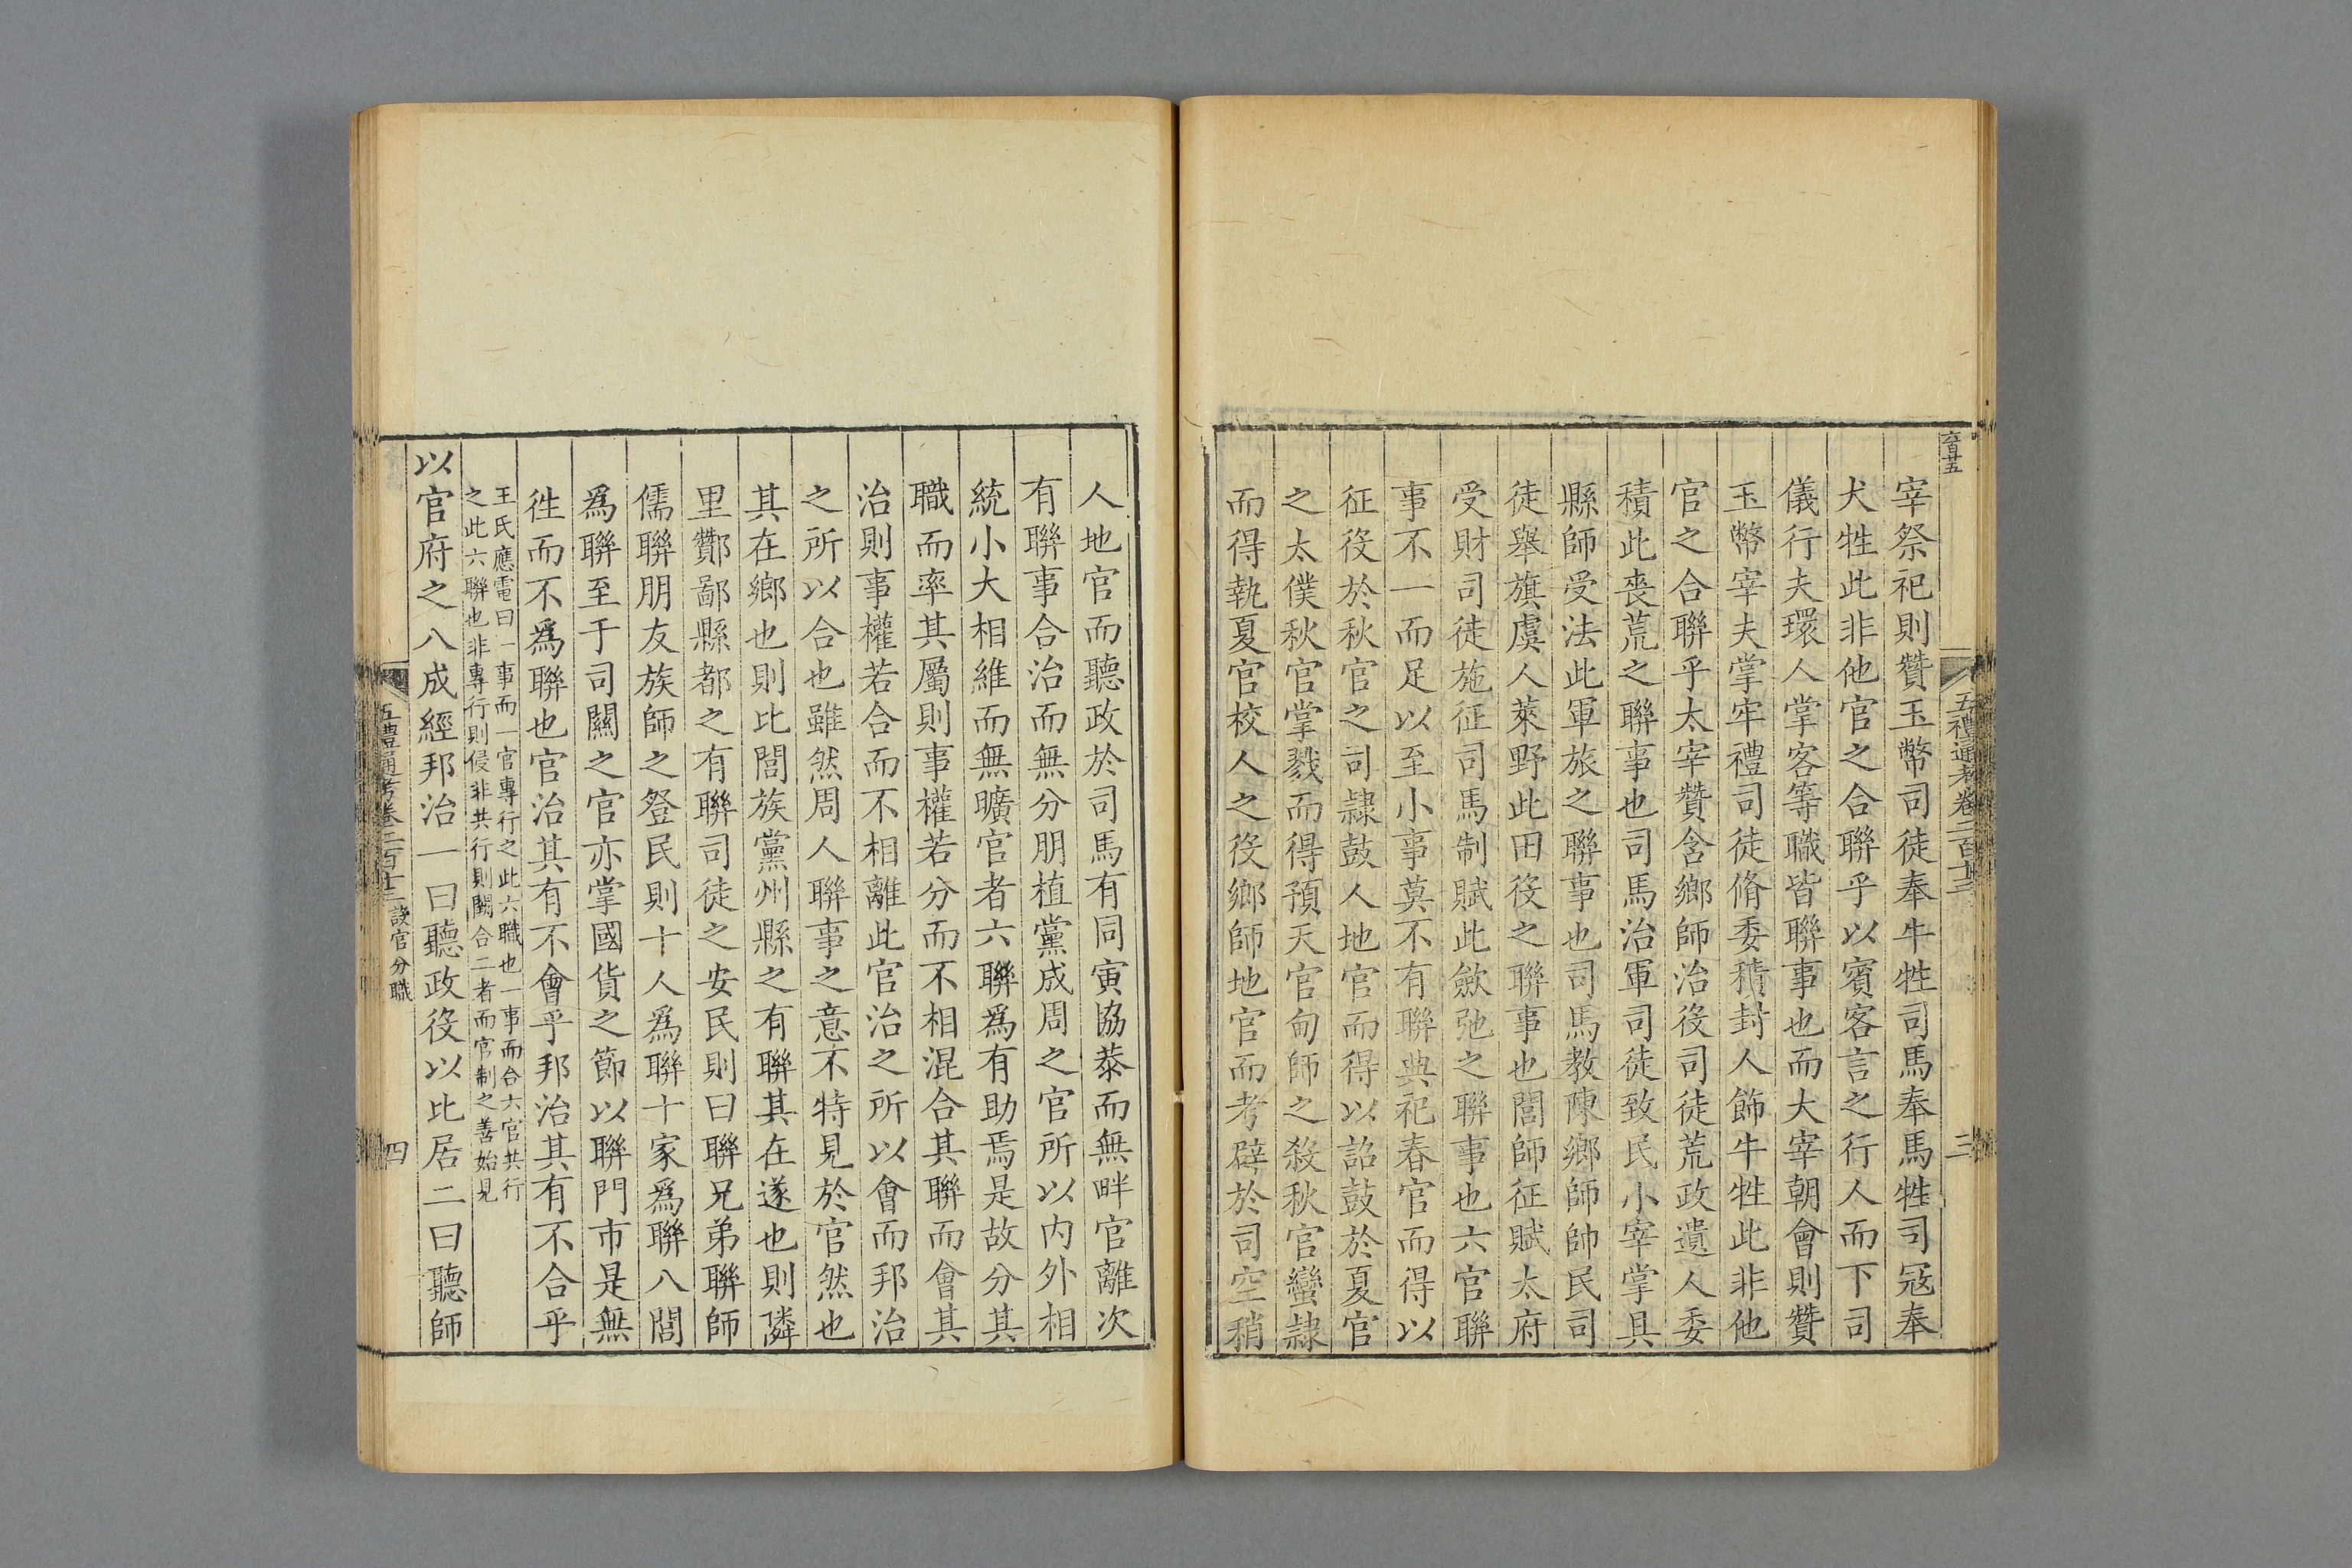 宰祭祀則贊玉幣司徒奉牛牲司馬奉馬牲司冦奉
犬牲此非他官之合聯乎以賓客言之行人而下司
儀行夫環人掌客等職皆聯事也而大宰朝會則贊
玉幣宰夫掌牢禮司徒脩委積封人飾牛牲此非他
官之合聯乎太宰贊含鄉師治役司徒荒政遺人委
積此喪荒之聯事也司馬治軍司徒致民小宰掌具
縣師受法此軍旅之聯事也司馬教陳鄉師帥民司
徒舉旗虞人萊野此田役之聯事也閭師征賦太府
受財司徒施征司馬制賦此斂弛之聯事也六官聯
事不一而足以至小事莫不有聯典祀春官而得以
征役於秋官之司隷鼓人地官而得以詔鼓於夏官
之太僕秋官掌戮而得預天官甸師之殺秋官蠻隷
而得執夏官校人之役鄉師地官而考辟於司空稍
五禮通考卷二百十三
三
人地官而聽政於司馬有同寅協恭而無畔官離次
有聯事合治而無分朋植黨成周之官所以内外相
統小大相維而無曠官者六聯爲有助焉是故分其
職而率其屬則事權若分而不相混合其聯而會其
治則事權若合而不相離此官治之所以會而邦治
之所以合也雖然周人聯事之意不特見於官然也
其在鄉也則比閭族黨州縣之有聯其在遂也則隣
里酇鄙縣都之有聯司徒之安民則曰聯兄弟聯師
儒聯朋友族師之登民則十人爲聯十家爲聯八閭
爲聯至于司關之官亦掌國貨之節以聯門市是無
徃而不爲聯也官治其有不會乎邦治其有不合乎
王氏應電曰一事而一官專行之此六職也一事而合六官共行
之此六聯也非專行則侵非共行則闕合二者而官制之善始見
以官府之八成經邦治一曰聽政役以比居二曰聽師
五禮通考卷二百十三
設官分職
四